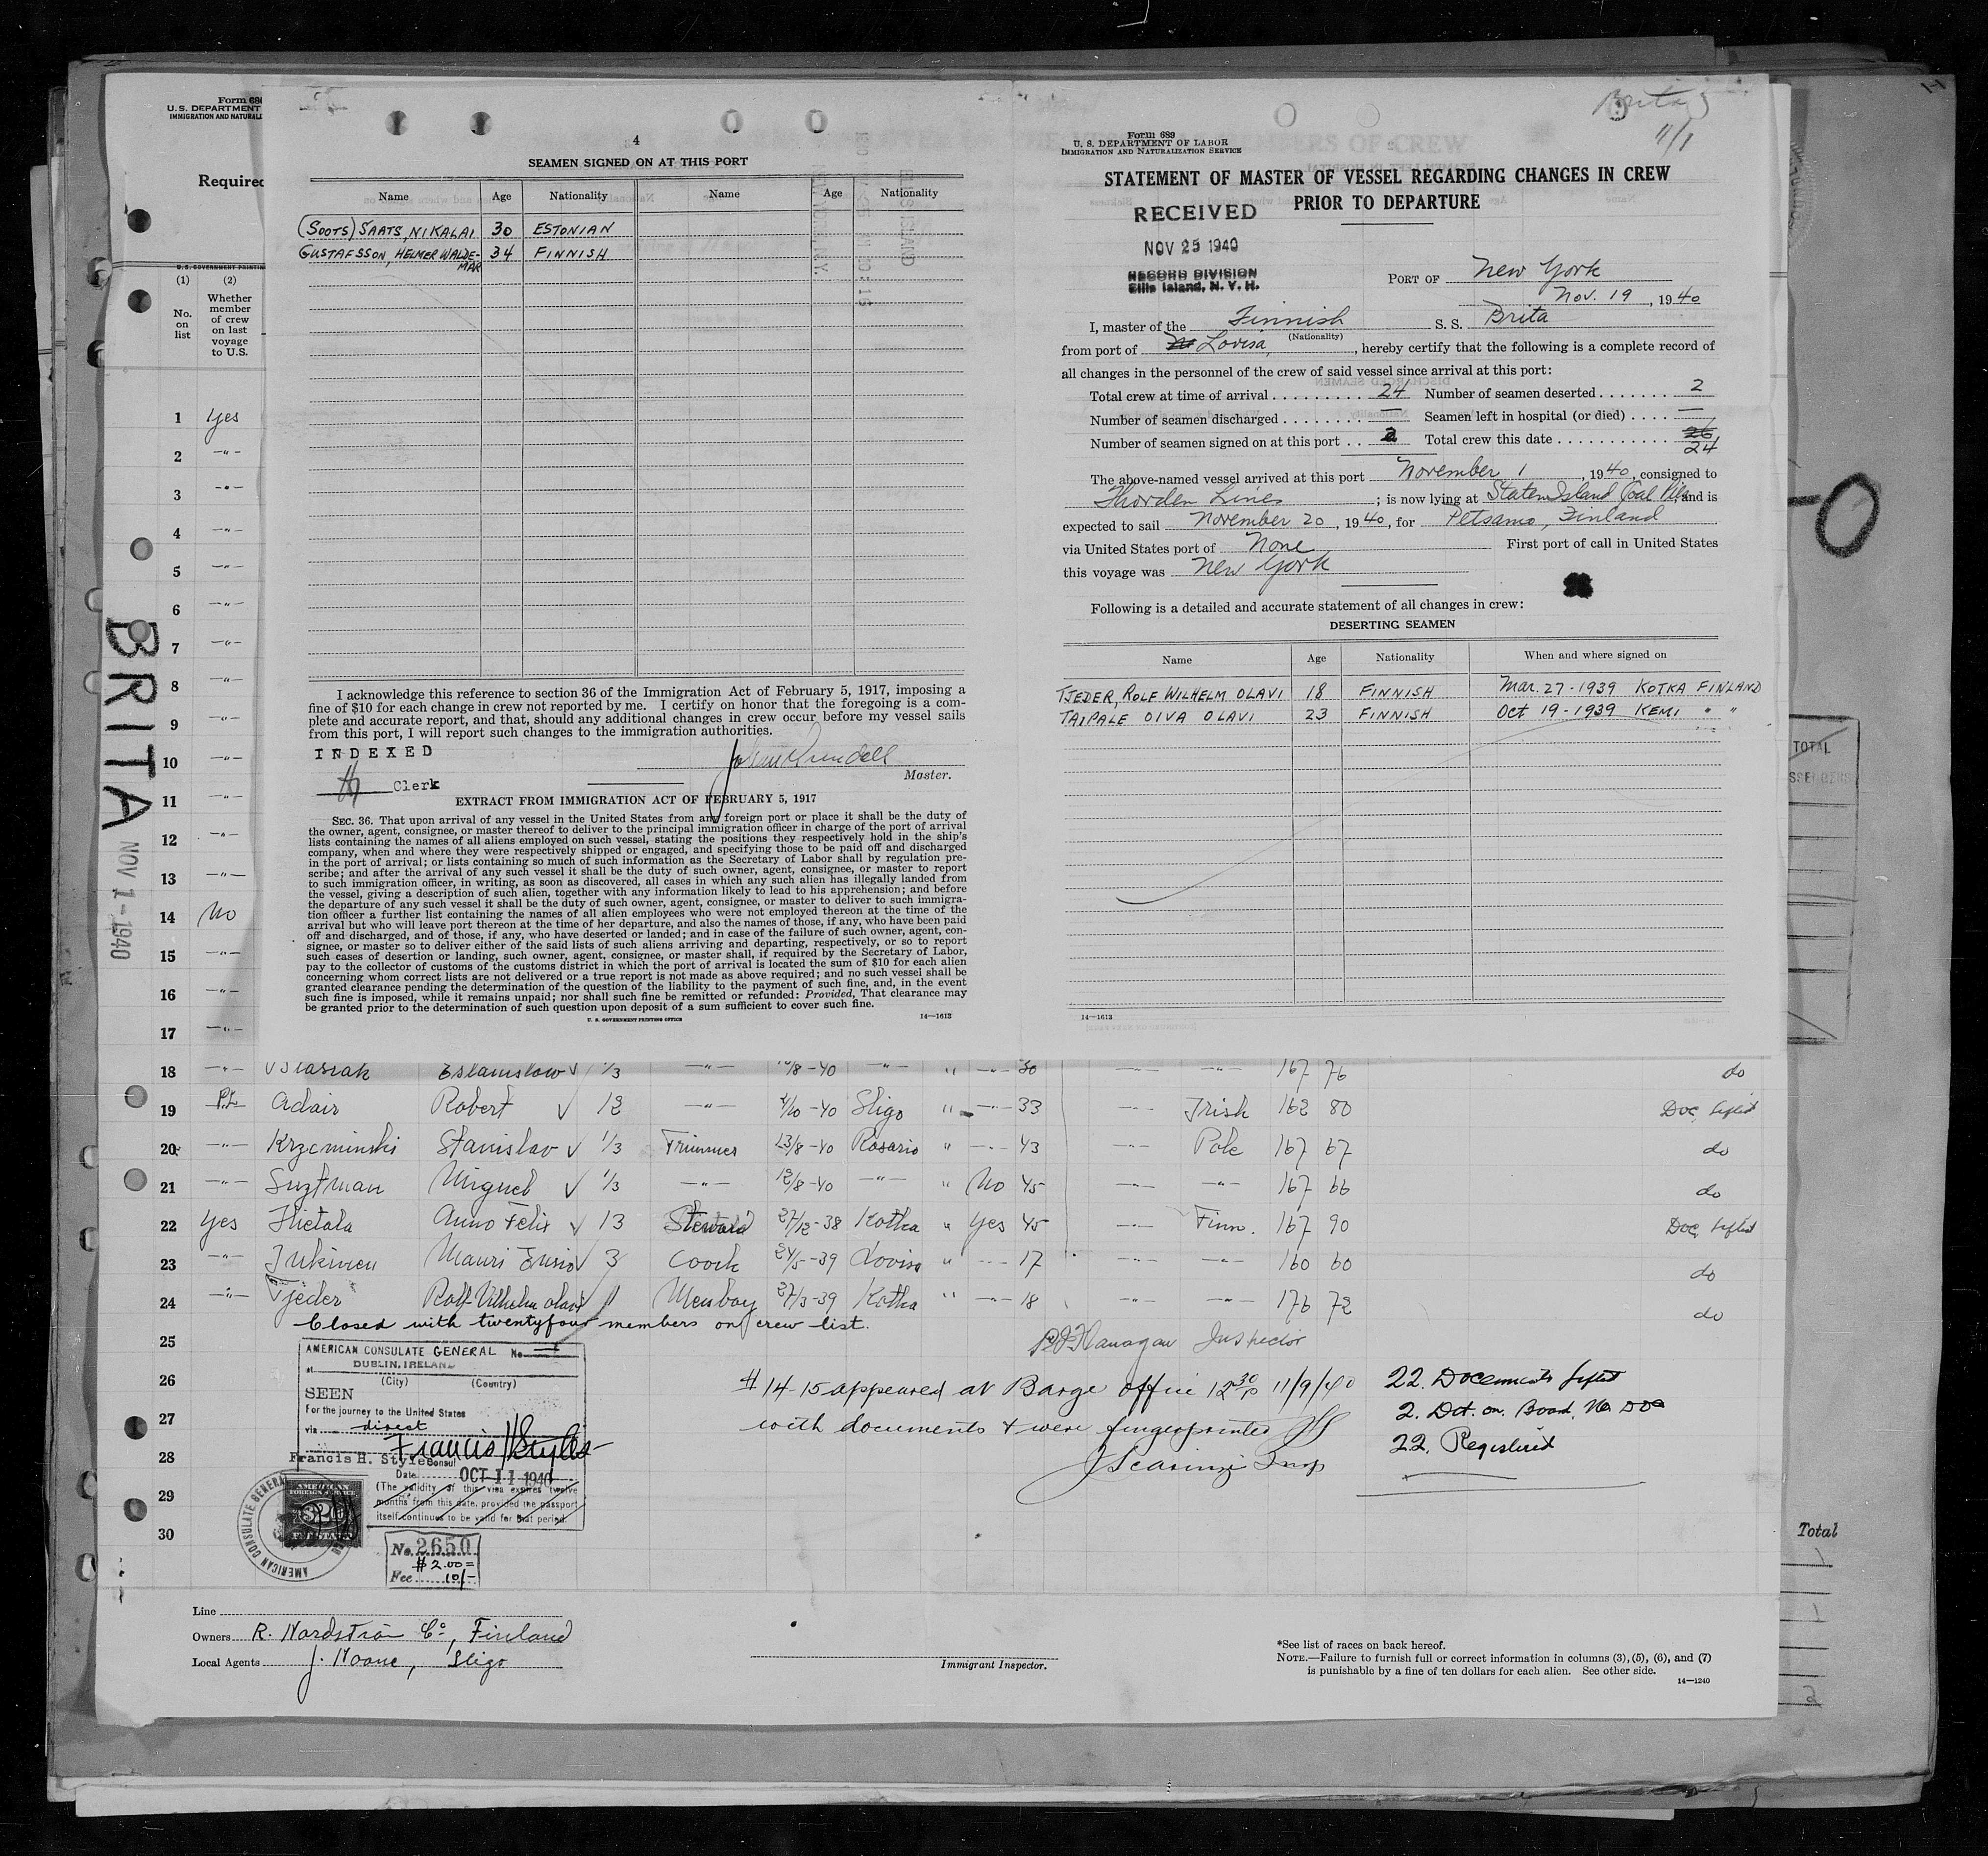 Form 686
U. S. DEPARTMENT
IMMIGRATION AND NATURALI
Required
(1) (2)
No. on list
Whether member of crew on last voyage to U.S.
1 Yes
2 —"—
3 —"—
4 —"—
5 —"—
6 —"—
7 —"—
8 —"—
9 —"—
10 —"—
11 —"—
12 —"—
13 —"—
14 No
15 —"—
16 —"—
17 —"—
BRITA
NOV 1 - 1940
4
SEAMEN SIGNED ON AT THIS PORT
Name Age Nationality Name Age Nationality
(SOOTS) SAATS, NIKALAI 30 ESTONIAN
GUSTAFSSON, HELMER WALDE- 34 FINNISH
MAR
I acknowledge this reference to section 36 of the Immigration Act of February 5, 1917, imposing a
fine of $10 for each change in crew not reported by me. I certify on honor that the foregoing is a com-
plete and accurate report, and that, should any additional changes in crew occur before my vessel sails
from this port, I will report such changes to the immigration authorities.
INDEXED
Clerk
Master.
EXTRACT FROM IMMIGRATION ACT OF FEBRUARY 5, 1917
SEC. 36. That upon arrival of any vessel in the United States from any foreign port or place it shall be the duty of
the owner, agent, consignee, or master thereof to deliver to the principal immigration officer in charge of the port of arrival
lists containing the names of all aliens employed on such vessel, stating the positions they respectively hold in the ship's
company, when and where they were respectively shipped or engaged, and specifying those to be paid off and discharged
in the port of arrival; or lists containing so much of such information as the Secretary of Labor shall by regulation pre-
scribe; and after the arrival of any such vessel it shall be the duty of such owner, agent, consignee, or master to report
to such immigration officer, in writing, as soon as discovered, all cases in which any such alien has illegally landed from
the vessel, giving a description of such alien, together with any information likely to lead to his apprehension; and before
the departure of any such vessel it shall be the duty of such owner, agent, consignee, or master to deliver to such immigra-
tion officer a further list containing the names of all alien employees who were not employed thereon at the time of the
arrival but who will leave port thereon at the time of her departure, and also the names of those, if any, who have been paid
off and discharged, and of those, if any, who have deserted or landed; and in case of the failure of such owner, agent, con-
signee, or master so to deliver either of the said lists of such aliens arriving and departing, respectively, or so to report
such cases of desertion or landing, such owner, agent, consignee, or master shall, if required by the Secretary of Labor,
pay to the collector of customs of the customs district in which the port of arrival is located the sum of $10 for each alien
concerning whom correct lists are not delivered or a true report is not made as above required; and no such vessel shall be
granted clearance pending the determination of the question of the liability to the payment of such fine, and, in the event
such fine is imposed, while it remains unpaid; nor shall such fine be remitted or refunded: Provided, That clearance may
be granted prior to the determination of such question upon deposit of a sum sufficient to cover such fine.
U. S. GOVERNMENT PRINTING OFFICE 14—1613
Brita
11/1
Form 689
U. S. DEPARTMENT OF LABOR
IMMIGRATION AND NATURALIZATION SERVICE
STATEMENT OF MASTER OF VESSEL REGARDING CHANGES IN CREW
PRIOR TO DEPARTURE
RECEIVED
NOV 25 1940
RECORD DIVISION
Ellis Island, N. Y. H.
PORT OF New York
Nov. 19, 1940
I, master of the Finnish S. S. Brita
(Nationality)
from port of Lovisa, hereby certify that the following is a complete record of
all changes in the personnel of the crew of said vessel since arrival at this port:
Total crew at time of arrival 24 Number of seamen deserted 2
Number of seamen discharged — Seamen left in hospital (or died) —
Number of seamen signed on at this port 2 Total crew this date 26 24
The above-named vessel arrived at this port November 1, 1940, consigned to
Thorden Lines; is now lying at Staten Island Coal Pier, and is
expected to sail November 20, 1940, for Petsamo, Finland
via United States port of None First port of call in United States
this voyage was New York
Following is a detailed and accurate statement of all changes in crew:
DESERTING SEAMEN
Name Age Nationality When and where signed on
TJEDER, ROLF WILHELM OLAVI 18 FINNISH Mar. 27 - 1939 KOTKA FINLAND
TAIPALE OIVA OLAVI 23 FINNISH Oct 19 - 1939 KEMI " "
14—1613
TOTAL
18 —"— Estanislow 1/3 —"— /8-40 —"— " —"— 30 —"— —"— 167 76 do
19 Adair Robert 12 —"— 4/10-40 Sligo " —"— 33 —"— Irish 162 80 Doc lifted
20 —"— Krzeminski Stanislav 1/3 Trimmer 13/8-40 Rosario " —"— 43 —"— Pole 167 67 do
21 —"— Miguel 1/3 —"— 12/8-40 —"— " No 45 —"— —"— 167 66 do
22 Yes Hietala Felix 13 Steward 27/12-38 Kotka " Yes 45 —"— Finn. 167 90 Doc lifted
23 —"— Mauri 3 Coock 24/5-39 Lovisa " —"— 17 —"— —"— 160 60 do
24 —"— Tjeder Rolf Vilhelm Olavi 11 Messboy 27/3-39 Kotka " —"— 18 —"— —"— 176 72 do
Closed with twentyfour members on crew list.
25
26
27
28
29
30
Flanagan Inspector
AMERICAN CONSULATE GENERAL No.
at DUBLIN, IRELAND
(City) (Country)
SEEN
For the journey to the United States
via direct
Francis H. Styles
Francis H. Styles Consul
Date OCT 11 1940
(The validity of this visa expires twelve
months from this date, provided the passport
itself continues to be valid for that period.
AMERICAN CONSULATE GENERAL
AMERICAN
FOREIGN SERVICE
$2
FEE STAMP
No. 2650
$2.00=
Fee 10/-
#14-15 appeared at Barge office 12 30 p 11/9/40
with documents & were fingerprinted
Insp
22. Documents lifted
2. Det. on Board. No Doc
22. Registered
Total
1
1
2
Line
Owners R. Nordström Co, Finland
Local Agents J. Noone, Sligo
Immigrant Inspector.
*See list of races on back hereof.
NOTE.—Failure to furnish full or correct information in columns (3), (5), (6), and (7)
is punishable by a fine of ten dollars for each alien. See other side.
14—1240